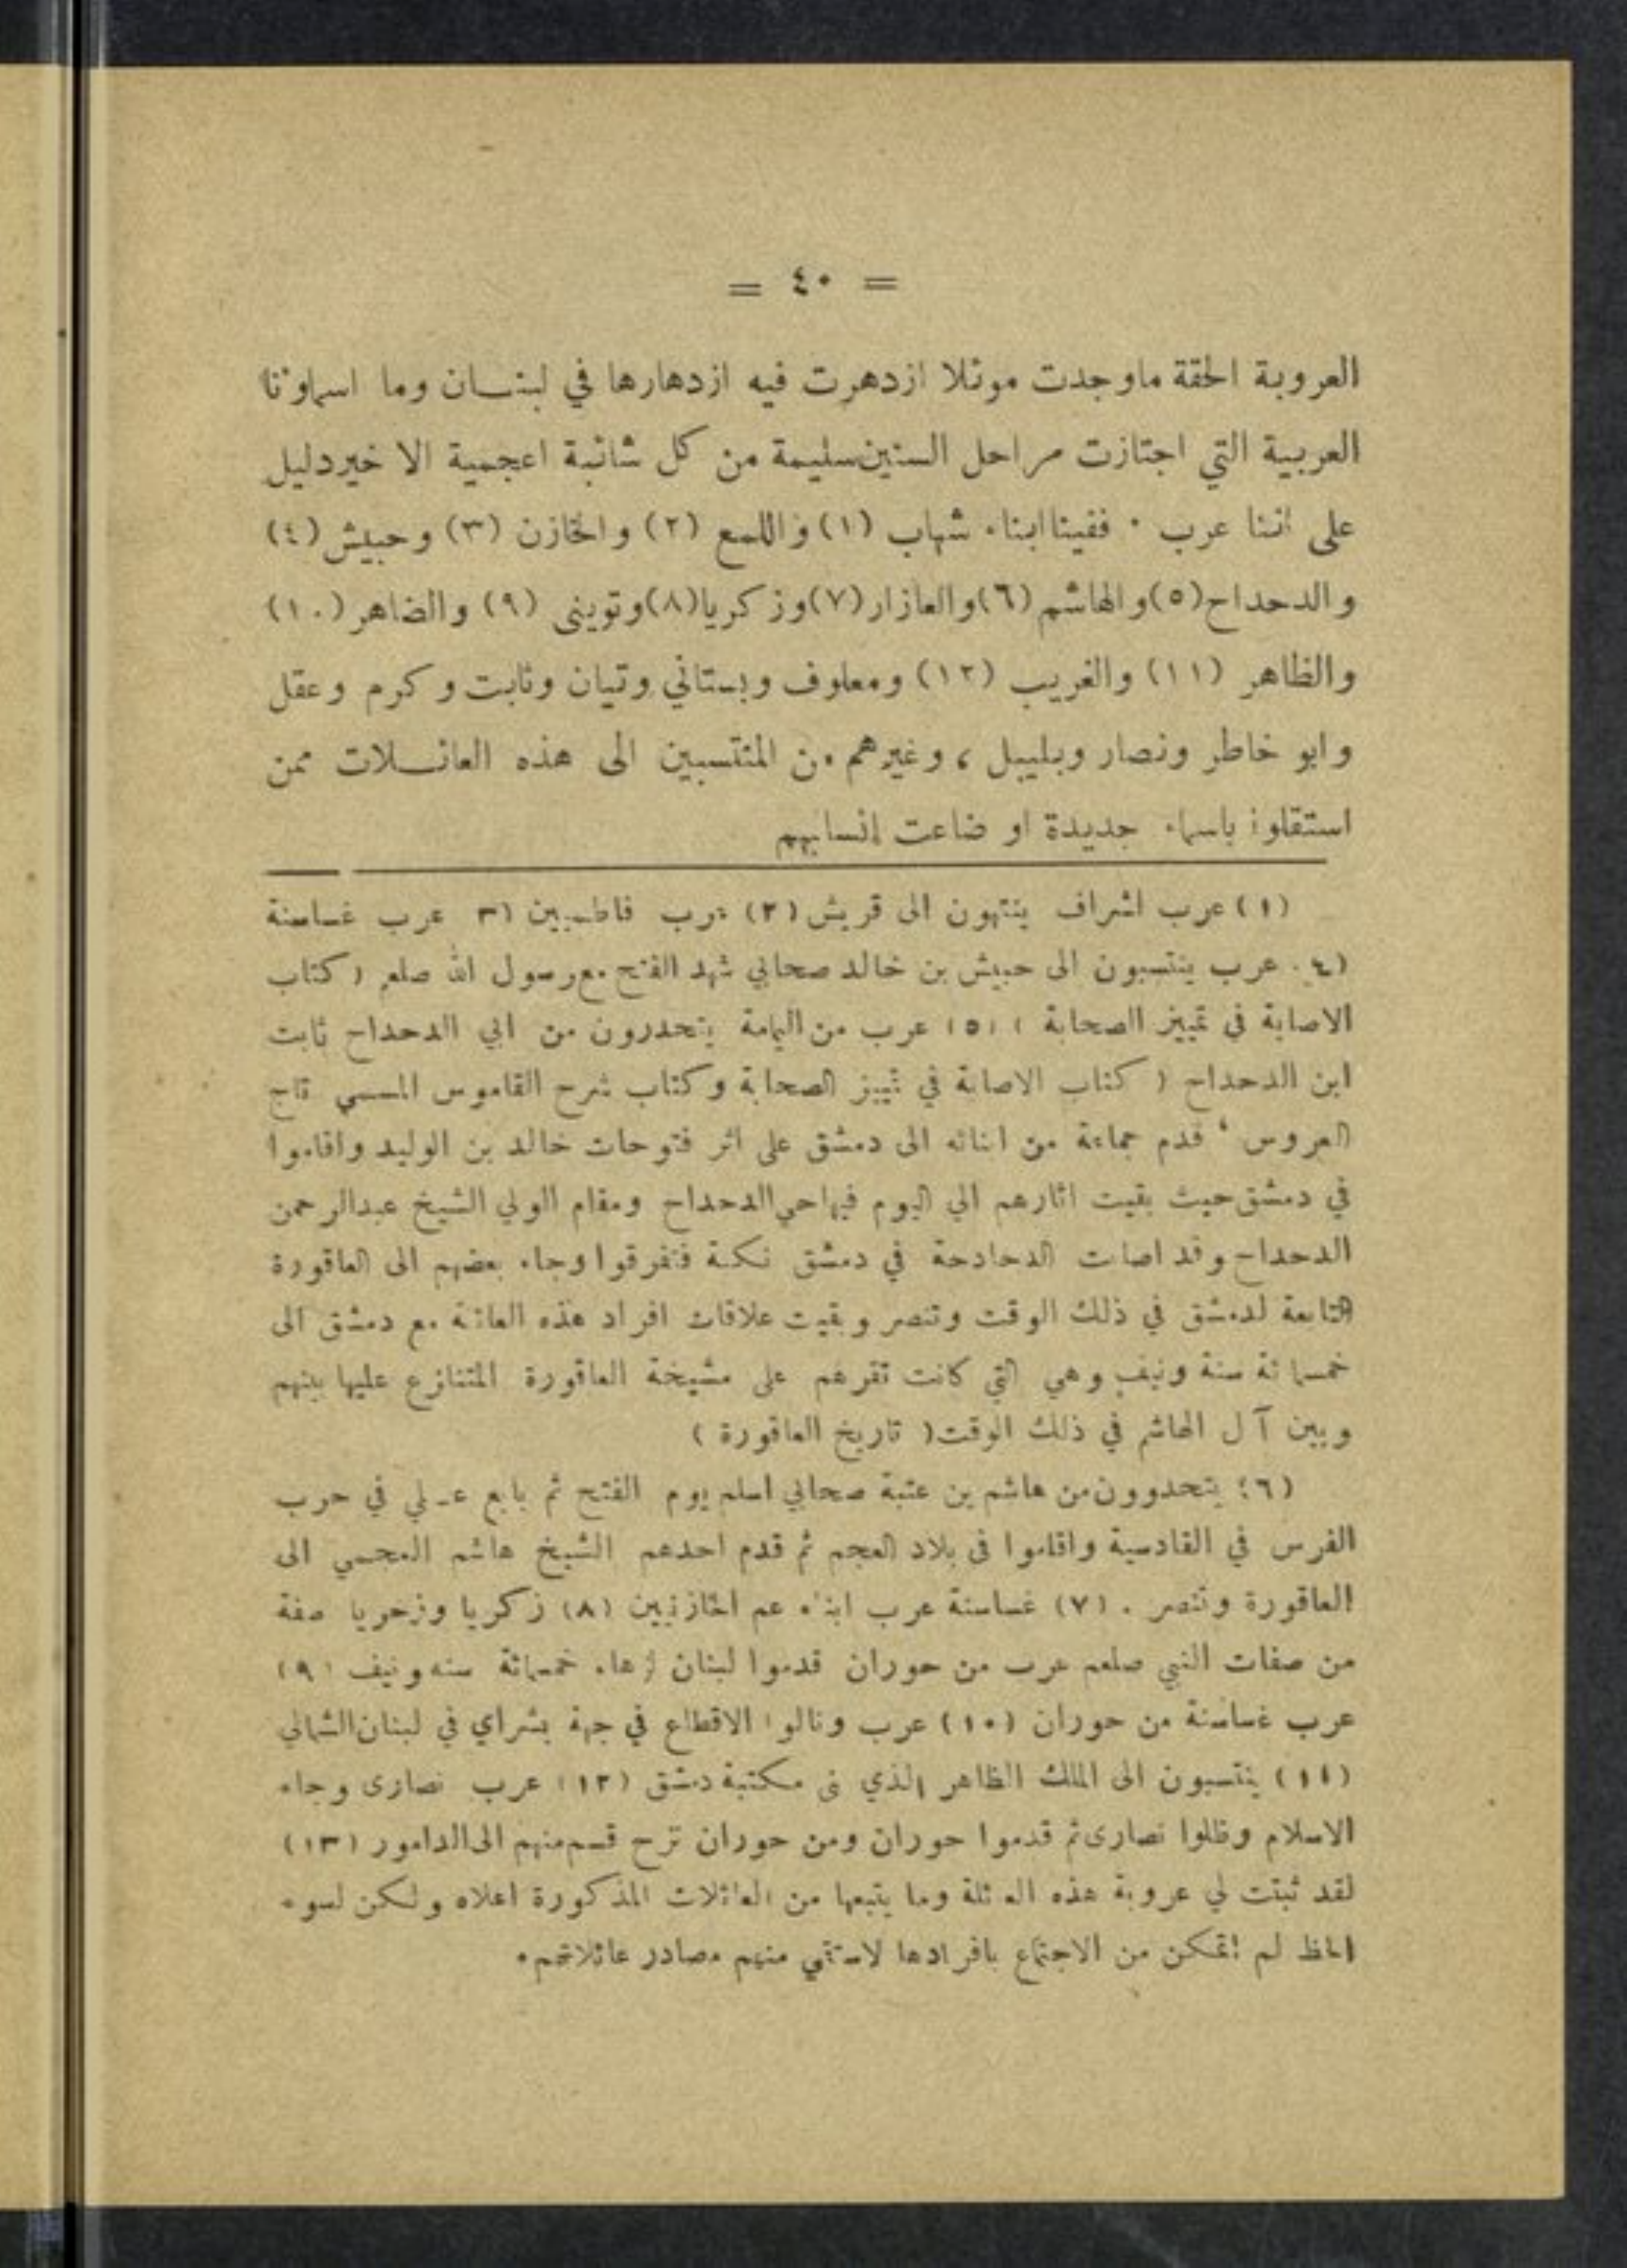 = ٤٠ =
العروبة الحقة ماوجدت موئلا ازدهرت فيه ازدهارها في لبنـــان وما اسماؤنا
العربية التي اجتازت مراحل السنين سليمة من كل شائبة اعجمية الا خير دليل
على اننا عرب . ففينا ابناء شهاب (١) واللمع (٢) والخازن (٣) وحبيش (٤)
والدحداح (٥) والهاشم (٦) والعازار (٧) وزكريا (٨) وتويني (٩) والضاهر (١٠)
والظاهر (١١) والغريب (١٢) ومعلوف وبستاني وتيان وثابت وكرم وعقل
وابو خاطر ونصار وبليبل ، وغيرهم من المنتسبين الى هذه العائـــلات ممن
استقلوا باسماء جديدة او ضاعت انسابهم
(١) عرب اشراف ينتهون الى قريش (٢) عرب فاطميين (٣ عرب غساسنة
(٤. عرب ينتسبون الى حبيش بن خالد صحابي شهد الفتح مع رسول الله صلعم ( كتاب
الاصابة في تمييز الصحابة ) (٥) عرب من اليمامة يتحدرون من ابي الدحداح ثابت
ابن الدحداح ( كتاب الاصابة في تمييز الصحابة وكتاب شرح القاموس المسمى تاج
العروس ‘ قدم جماعة من ابنائه الى دمشق على اثر فتوحات خالد بن الوليد واقاموا
في دمشق حيث بقيت اثارهم الي اليوم فيها حي الدحداح ومقام الولي الشيخ عبدالرحمن
الدحداح وقد اصابت الدحادحة في دمشق نكبة فتفرقوا وجاء بعضهم الى العاقورة
التابعة لدمشق في ذلك الوقت وتنصر وبقيت علاقات افراد هذه العائلة مع دمشق الى
خمسمائة سنة ونيف وهي التي كانت تقرهم على مشيخة العاقورة المتنازع عليها بينهم
وبين آل الهاشم في ذلك الوقت ( تاريخ العاقورة )
(٦) يتحدوون من هاشم بن عتبة صحابي اسلم يوم الفتح ثم بايع عـلي في حرب
الفرس في القادسية واقاموا في بلاد العجم ثم قدم احدهم الشيخ هاشم العجمي الى
العاقورة وتنصر . (٧) غساسنة عرب ابناء عم الخازنيين (٨) زكريا وزحريا صفة
من صفات النبي صلعم عرب من حوران قدموا لبنان زهاء خمسمائة سنه ونيف (٩)
عرب غساسنة من حوران (١٠) عرب ونالوا الاقطاع في جهة بشراي في لبنان الشمالي
(١١) ينتسبون الى الملك الظاهر الذي بنى مكتبة دمشق (١٢) عرب نصارى وجاء
الاسلام وظلوا نصارى ثم قدموا حوران ومن حوران نزح قسم منهم الى الدامور (١٣)
لقد ثبتت لي عروبة هذه العائلة وما يتبعها من العائلات المذكورة اعلاه ولكن لسوء
الحظ لم اتمكن من الاجتماع بافرادها لاستقي منهم مصادر عائلاتهم .